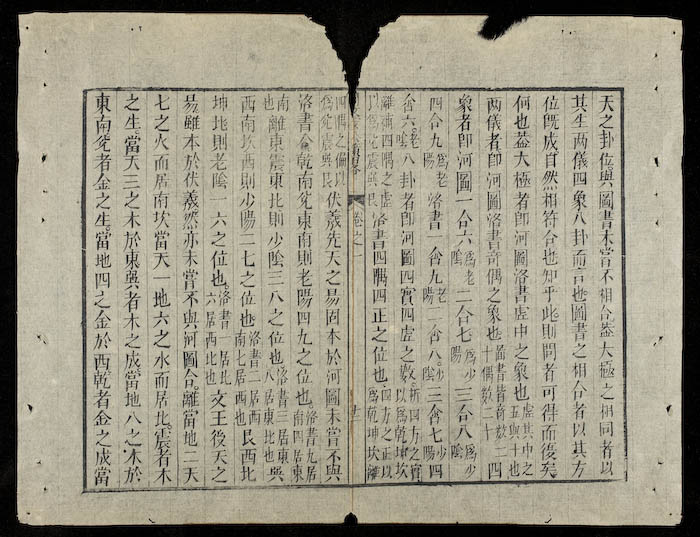 天之卦位與圖書未嘗不相合蓋太極之相同者以
其生两儀四象八卦而言也圖書之相合者以其方
位旣成自然相符合也知乎此則問者可得而後矣
何也蓋大極者卽河圖洛書虛中之象也虛其中之五與十也
两儀者卽河圖洛書奇偶之象也圖書皆奇数二十偶数二十四
象者卽河圖一合六為老陰二合七為少陽三合八為少陰
四合九為老陽洛書一含九老陽二含八少陰三含七少陽四
含六老陰八卦者卽河圖四實四虛之數析四方之實以為乾坤坎
離補四隅之虛以為兊震巽艮洛書四隅四正之位也四方之正以為乾坤坎離
卷之一
四隅之偏以為兊震巽艮伏羲先天之易固本於河圖未嘗不與
洛書合乾南兊東南則老陽四九之位也洛書九居南四居東
南也離東震東北則少陰三八之位也洛書三居東八居東北也巽
西南坎西則少陽二七之位也洛書二居西南七居西也艮西北
坤北則老陰一六之位也洛書一居北六居西北也文王後天之
易雖本於伏羲然亦未嘗不與河圖合離當地二天
七之火而居南坎當天一地六之水而居北震者木
之生當天三之木於東巽者木之成當地八之木於
東南兊者金之生當地四之金於西乾者金之成當